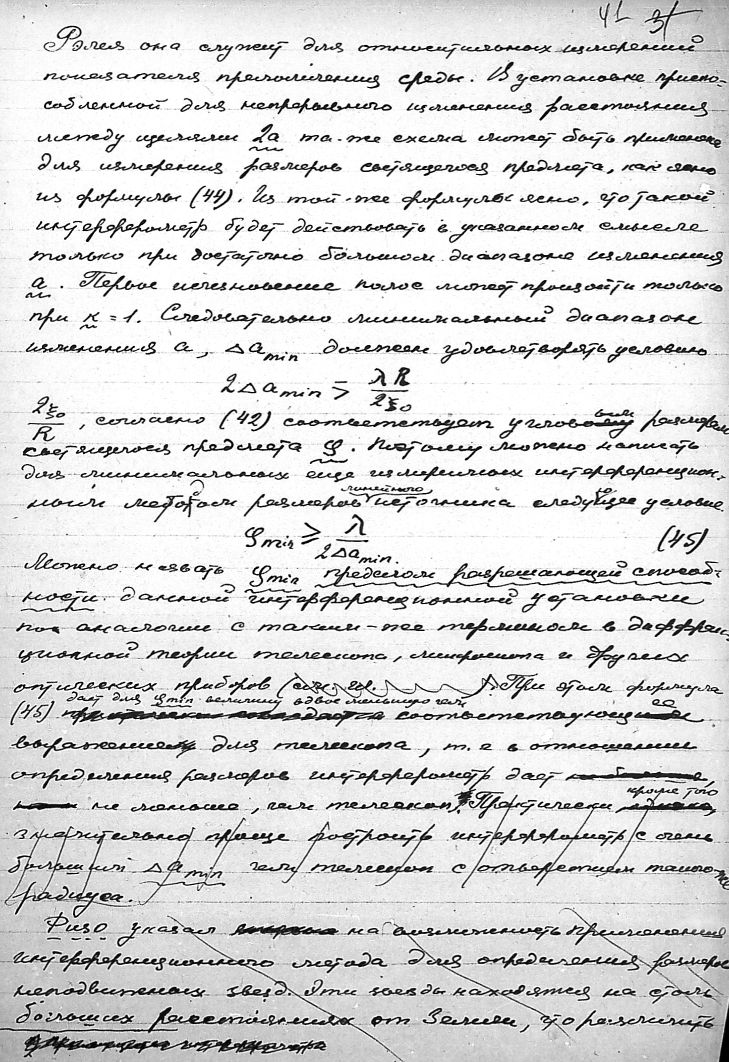 41 31
Рэлея она служит для относительных измерений
показателя преломления среды. В установке приспо-
собленной для непрерывного изменения расстояния
между щелями 2a та-же схема может быть применена
для измерения размеров светящегося предмета, как ясно
из формулы (44). Из той-же формулы ясно, что такой
интерферометр будет действовать в указанном смысле
только при достаточно большом диапазоне изменения
a. Первое исчезновение полос может произойти только
при к = 1. Следовательно минимальный диапазон
изменения a, Δa min должен удовлетворять условию
2Δa min ≥ λR / 2ξ₀
2ξ₀ / R, согласно (42) соответствует угловым размерам
светящегося предмета φ. Поэтому можно написать
для минимальных еще измеримых интерференцион-
ным методом размеров линейного источника следующее условие
φ min ≥ λ / 2Δa min (45)
Можно назвать φ min пределом разрешающей способ-
ности данной интерференционной установки
по аналогии с таким-же термином в диффрак-
ционной теории телескопа, микроскопа и других
оптических приборов (см. гл. ). При этом формула
(45) дает для φ min величину вдвое меньшую чем соответствующее
выражение для телескопа, т.е в отношении
определения размеров интерферометр дает
не меньше, чем телескоп. Практически кроме того
значительно проще построить интерферометр с очень
большим Δa min чем телескоп с отверстием такого-же
радиуса.
Физо указал на возможность применения
интерференционного метода для определения размеров
неподвижных звезд. Эти звезды находятся на столь
больших расстояниях от Земли, что различить